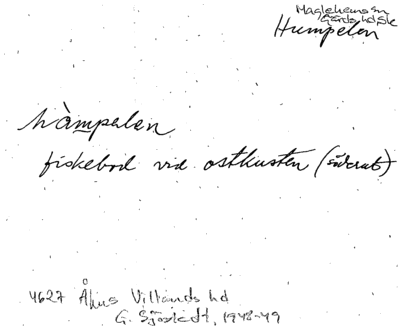 Maglehems sn
Gärds hd, Sk
Humpelen
hàmpelen
fiskebod vid ostkusten
4627 Åhus Villands hd
G. Sjöstedt, 1948-49